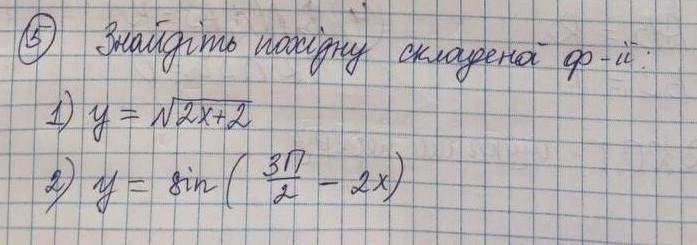 5 Знайдіть похідну складеної ф-ії:
1) y = √2x+2
2) y = sin ( 3П/2 - 2x)